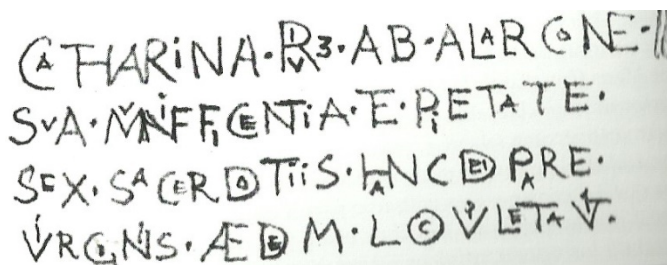 CATHARiNA·RVi3·AB·ALARCONE·
SVA·MVNiFFiCENTiA·E·PiETATE·
SEX·SACERDOTiiS·HANC DEI PARE·
ViRGiNiS·ÆDEM·LOCVPLETAViT.